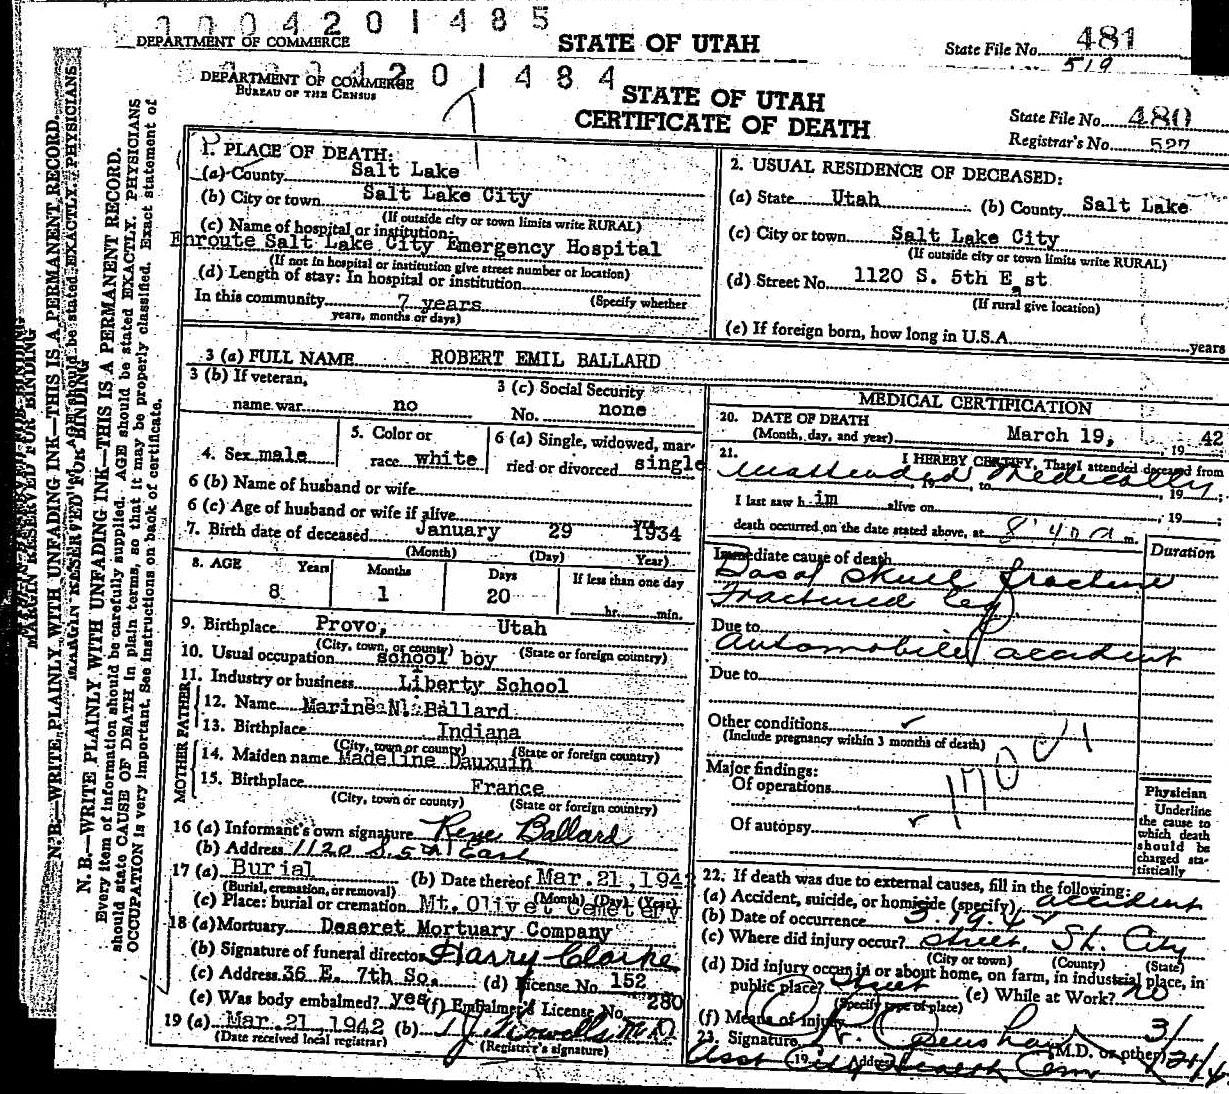 0004201485
DEPARTMENT OF COMMERCE
STATE OF UTAH
State File No. 481
519
4201484
DEPARTMENT OF COMMERCE
BUREAU OF THE CENSUS
STATE OF UTAH
CERTIFICATE OF DEATH
State File No. 480
Registrar's No. 527
MARGIN RESERVED FOR BINDING
N. B.—WRITE PLAINLY WITH UNFADING INK—THIS IS A PERMANENT RECORD.
MARGIN RESERVED FOR BINDING
N. B.—WRITE PLAINLY WITH UNFADING INK—THIS IS A PERMANENT RECORD.
Every item of information should be carefully supplied. AGE should be stated EXACTLY. PHYSICIANS
should state CAUSE OF DEATH in plain terms, so that it may be properly classified. Exact statement of
OCCUPATION is very important. See instructions on back of certificate.
1. PLACE OF DEATH:
(a) County Salt Lake
(b) City or town Salt Lake City
(If outside city or town limits write RURAL)
(c) Name of hospital or institution:
Enroute Salt Lake City Emergency Hospital
(If not in hospital or institution give street number or location)
(d) Length of stay: In hospital or institution
In this community 7 years (Specify whether
years, months or days)
2. USUAL RESIDENCE OF DECEASED:
(a) State Utah (b) County Salt Lake
(c) City or town Salt Lake City
(If outside city or town limits write RURAL)
(d) Street No. 1120 S. 5th East
(If rural give location)
(e) If foreign born, how long in U.S.A. years
3 (a) FULL NAME ROBERT EMIL BALLARD
3 (b) If veteran,
name war no
3 (c) Social Security
No. none
4. Sex male
5. Color or
race white
6 (a) Single, widowed, mar-
ried or divorced single
6 (b) Name of husband or wife
6 (c) Age of husband or wife if alive yrs.
7. Birth date of deceased January 29 1934
(Month) (Day) Year)
8. AGE Years Months Days If less than one day
8 1 20 hr. min.
9. Birthplace Provo, Utah
(City, town, or county) (State or foreign country)
10. Usual occupation school boy
11. Industry or business Liberty School
FATHER
12. Name Marine N. Ballard
13. Birthplace Indiana
(City, town or county) (State or foreign country)
MOTHER
14. Maiden name Madeline Dauxuin
15. Birthplace France
(City, town or county) (State or foreign country)
16 (a) Informant's own signature Rene Ballard
(b) Address 1120 S. 5th East
17 (a) Burial (b) Date thereof Mar. 21, 1942
(Burial, cremation, or removal) (Month) (Day) (Year)
(c) Place: burial or cremation Mt. Olivet Cemetery
18 (a) Mortuary Deseret Mortuary Company
(b) Signature of funeral director Harry Clarke
(c) Address 36 E. 7th So. (d) License No. 152
(e) Was body embalmed? yes (f) Embalmer's License No. 280
19 (a) Mar. 21, 1942 (b) T J Howells M.D.
(Date received local registrar) (Registrar's signature)
MEDICAL CERTIFICATION
20. DATE OF DEATH
(Month, day, and year) March 19, 19 42
21. I HEREBY CERTIFY, That I attended deceased from
unattended Medically, to , 19 ;
I last saw h im alive on , 19 ;
death occurred on the date stated above, at 8:40 a m.
Immediate cause of death Duration
Basal skull fracture
Fractured leg
Due to
Automobile accident
Due to
Other conditions
(Include pregnancy within 3 months of death)
170
Major findings:
Of operations
Of autopsy
Physician
Underline
the cause to
which death
should be
charged sta-
tistically
22. If death was due to external causes, fill in the following:
(a) Accident, suicide, or homicide (specify) accident
(b) Date of occurrence 3-19-42
(c) Where did injury occur? street, S.L. City
(City or town) (County) (State)
(d) Did injury occur in or about home, on farm, in industrial place, in
public place? Street (e) While at Work? no
(Specify type of place)
(f) Means of injury
23. Signature (M.D. or other)
Asst City Health Com
19 Address